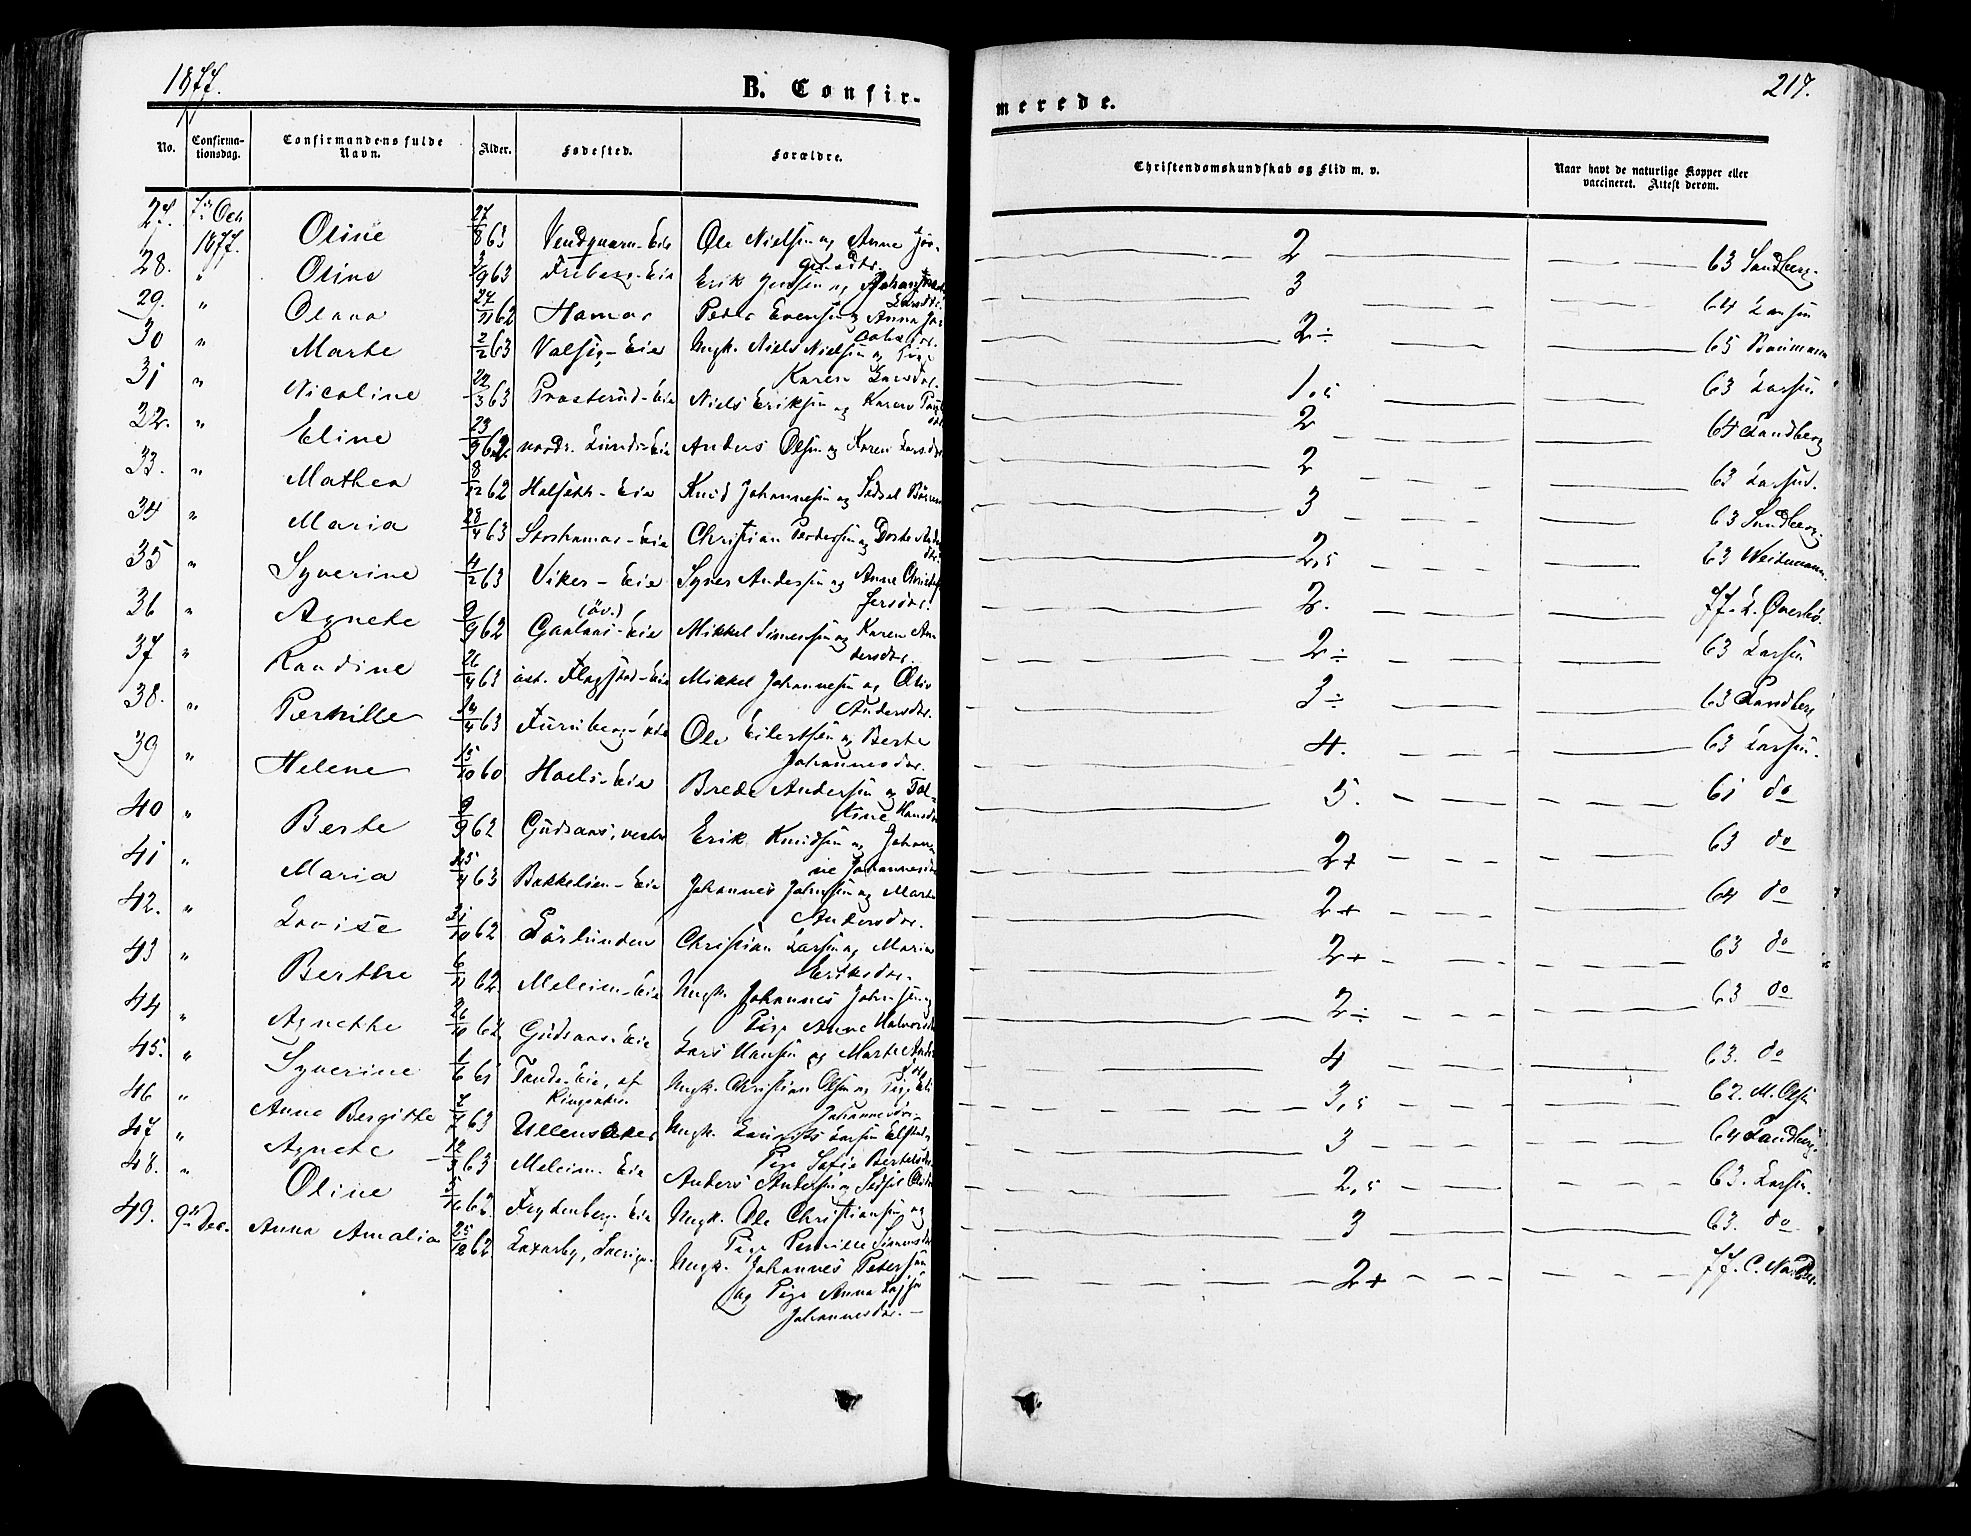 1877.
B. Confir-
merede.
217.
No. Confirma-tionsdag. Confirmandens fulde Navn. Alder. Fødested. Forældre. Christendomskundskab og Flid m. v. Naar havt de naturlige Kopper eller vaccineret. Attest derom.
27. 7de Oct. 1877. Oline 27/8 63 Vendqvern-Eie Ole Nielsen og Anne Jør-gensdtr. 2 63 Sandberg.
28. " Oline 3/9 63 Friberg-Eie Erik Jensen og Johanne Larsdtr. 3 64 Larsen
29. " Olava 27/11 62 Hamar Peder Evensen og Anna Ja-cobsdtr. 2÷ 65 Baumann
30 " Marte 2/2 63 Valseg-Eie Ungk. Niels Nielsen og Pige Karen Larsdtr. 1,5 63 Larsen
31 " Nicoline 22/3 63 Prosterud-Eie Niels Eriksen og Karen 2 64 Sandberg
32. " Eline 23/9 62 nordr. Lunds-Eie Anders Olsen og Karen Larsdtr 2 63 Larsen.
33. " Mathea 8/12 62 Halseth-Eie Knud Johannesen og Sidsel 3 63 Sandberg
34 " Maria 28/4 63 Storhamar-Eie Christian Pedersen og Dorte 2,5 63 Weidemann.
35 " Syverine 4/2 63 Viker-Eie Syver Andersen og Anne Christof-fersdtr. 2. 77. L.
36 " Agnete 9/9 62 (øv.) Gaalaas-Eie Mikkel Simensen og Karen An-dersdtr. 2÷ 63 Larsen
37 " Randine 26/4 63 øst. Flagstad-Eie Mikkel Johannesen og Oliv Andersdtr. 3÷ 63 Sandberg
38. " Pernille 14/4 63 Furuberg-Eie Ole Eilertsen og Berte Johannesdtr. 4. 63 Larsen.
39 " Helene 15/10 60 Hoels-Eie Brede Andersen og Hansdtr 5. 61 do
40 " Berte 9/9 62 Gudsaas, vestre Erik Knudsen og Johan-ne Johannesdtr 2+ 63 do
41 " Maria 25/4 63 Bakkelien-Eie Johannes Johnsen og Marte Andersdtr. 2+ 64 do
42. " Lovise 31/10 62 Christian Larsen og Marie Eriksdtr. 2+ 63 do
43 " Berthe 6/11 62. Meleim-Eie Ungk. Johannes Johnsen og Pige Anne Halvorsdtr 2÷ 63 do
44 " Agnethe 26/10 62 Gudsaas-Eie Lars Hansen og Marte 4 63. do
45. " Syverine 1/6 61 Eie, af Ringsaker Ungk. Christian Olsen og Pige Johannesdtr. 3,5 62. M. Olsen
46 " Anne Bergitte 63 Ullensaker Ungk. Larsen Pige Sofie Bertelsdtr. 3 64 Sandberg.
47 " Agnete 12/3 63 Meleim-Eie Anders Andersen og Sidsel 2,5 63. Larsen.
48. " Oline 62. Frydenberg-Eie Ungk. Ole Christiansen og Pige Pernille Simensdtr 3 63. do
49. 9de Dec. Anna Amalia 25/12 62 Laxarby, Sverige. Ungk. Johannes Petersson og Pige Anna Johannesdtr. 2+ 77. C.